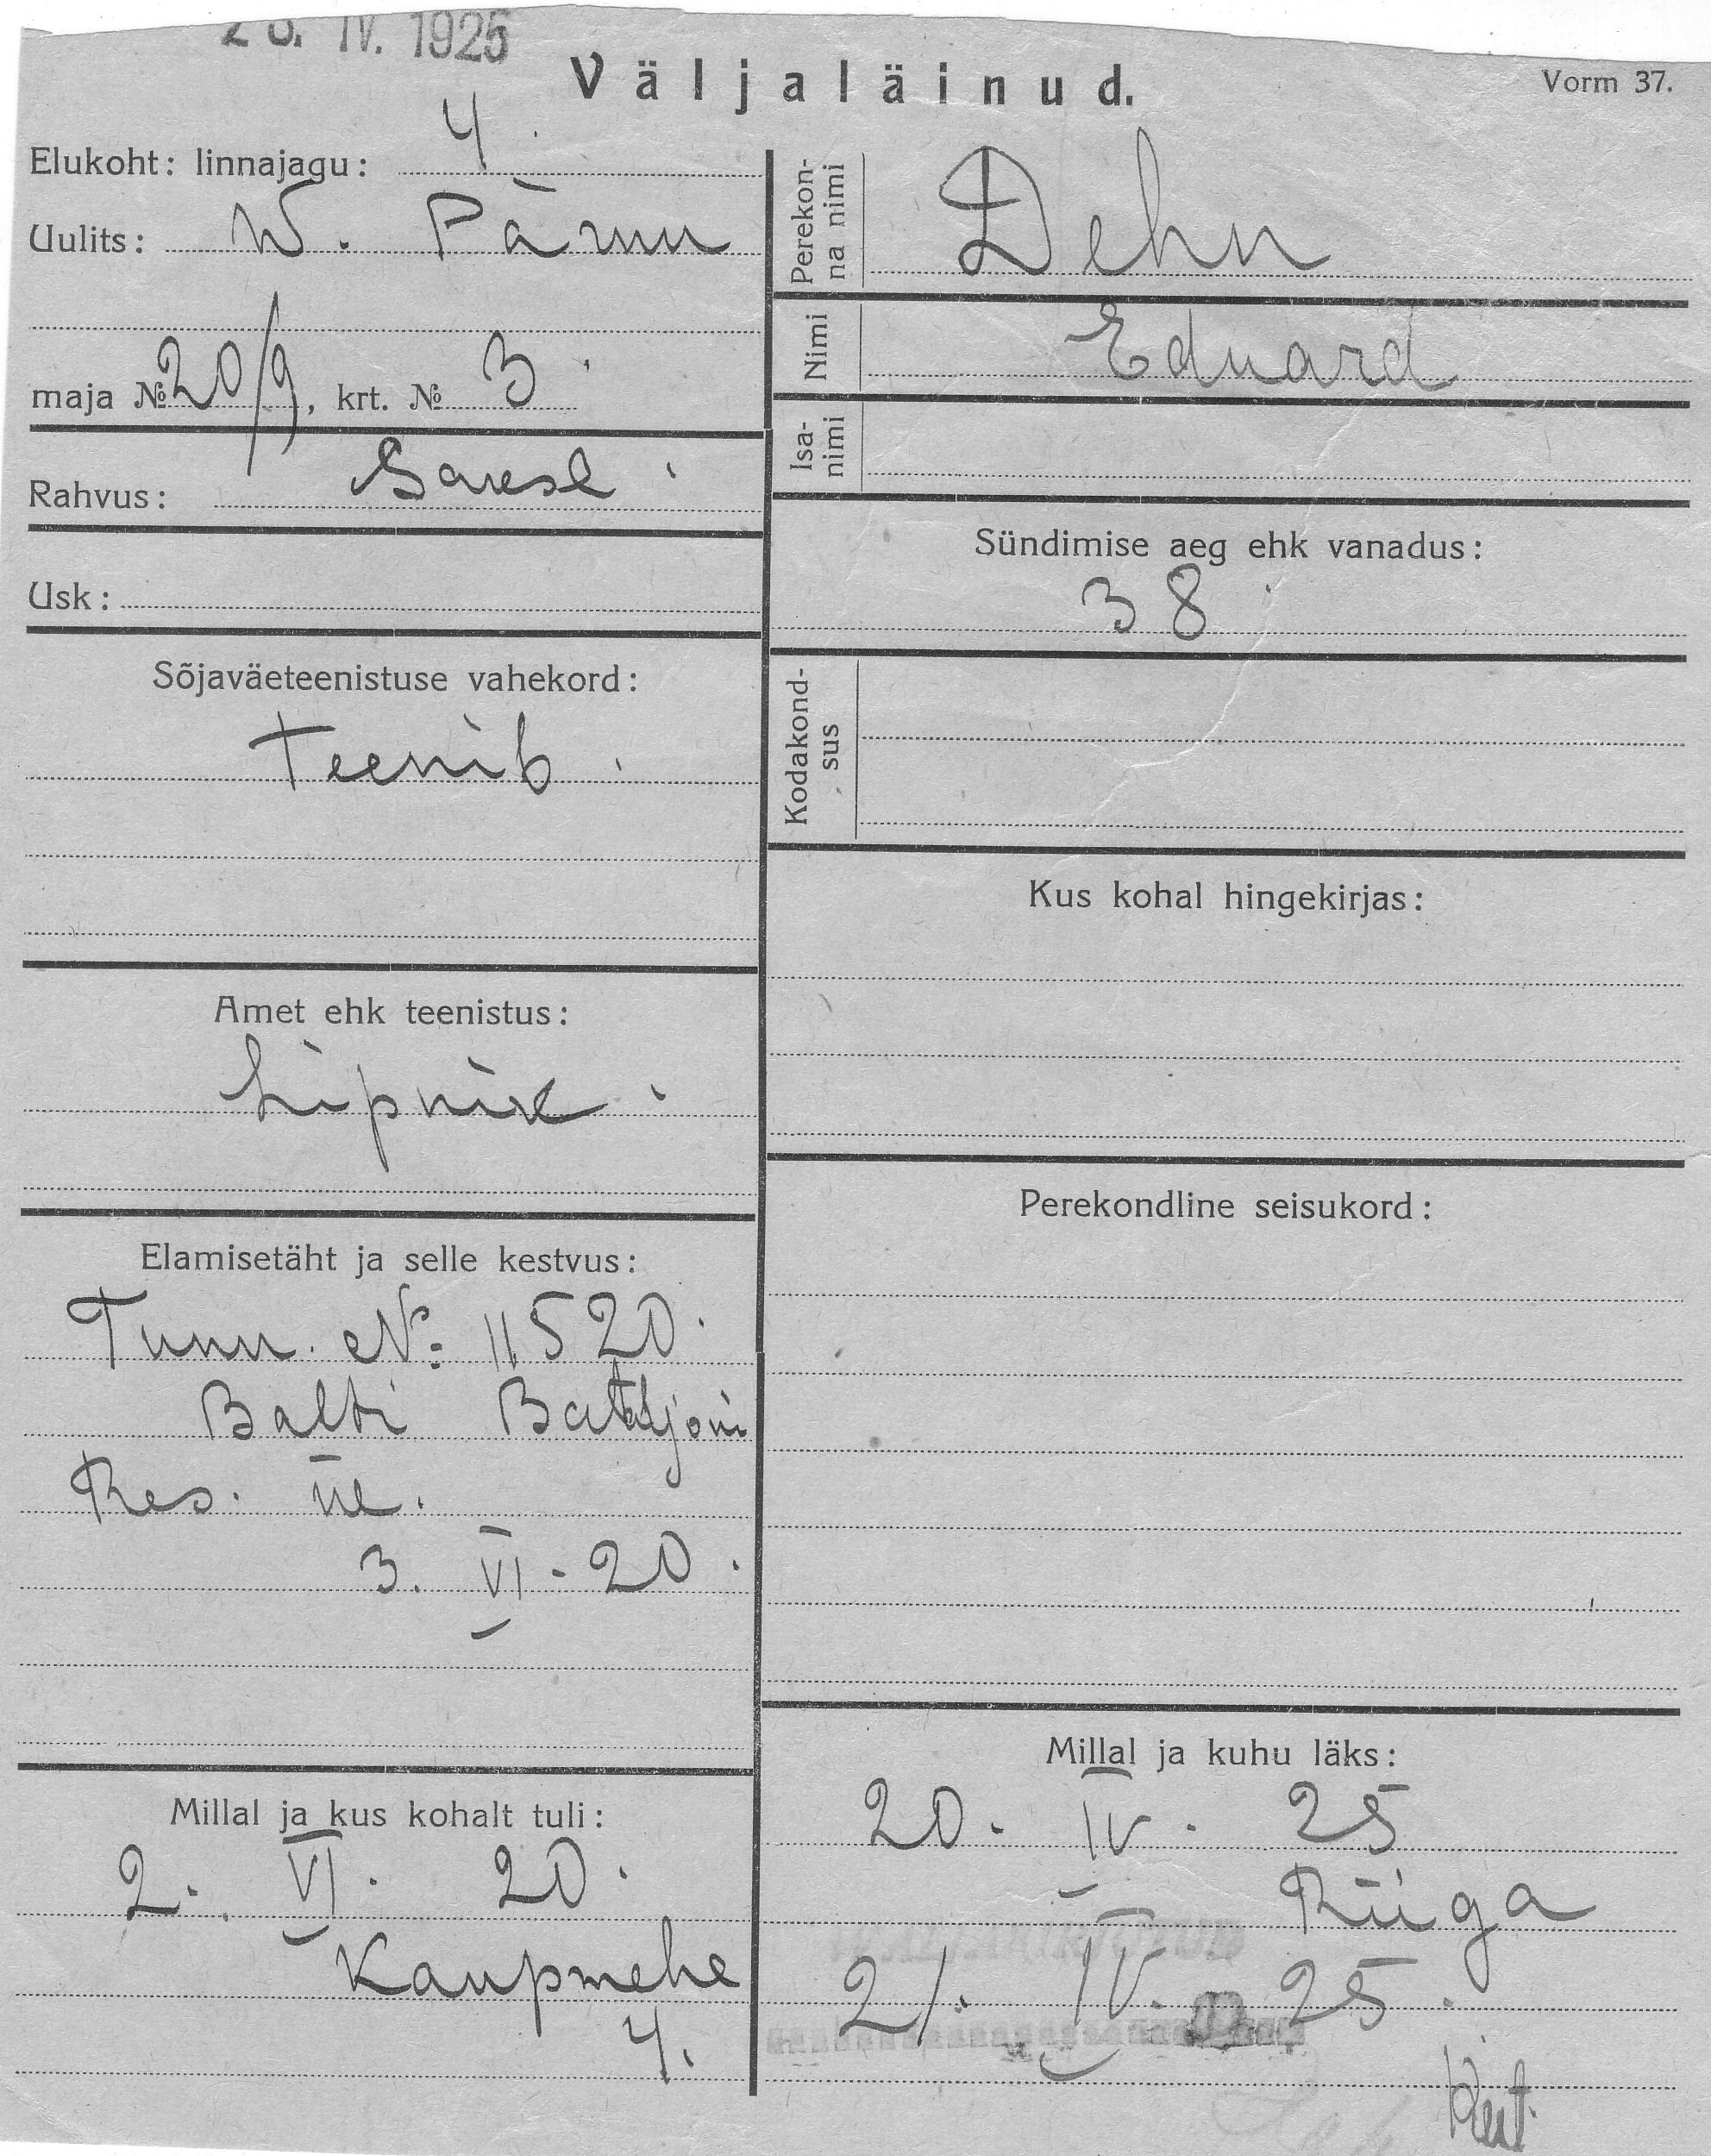 IV. 1925
Väljaläinud.
Vorm 37.
Elukoht: linnajagu: 4.
Uulits: W. Pärnu
maja № 20/9, krt. № 3
Rahvus: Saksl.
Usk:
Sõjaväeteenistuse vahekord:
Teenib.
Amet ehk teenistus:
Lipnik.
Elamisetäht ja selle kestvus:
Tunn. №: 11520.
Balti Bataljoni
Res. ül.
3. VI - 20.
Millal ja kus kohalt tuli:
2. VI. 20.
Kaupmehe
4.
Perekon-
na nimi
Dehn
Nimi
Eduard
Isa-
nimi
Sündimise aeg ehk vanadus:
38
Kodakond-
sus
Kus kohal hingekirjas:
Perekondline seisukord:
Millal ja kuhu läks:
20. IV. 25
Riiga
21. IV. 25.